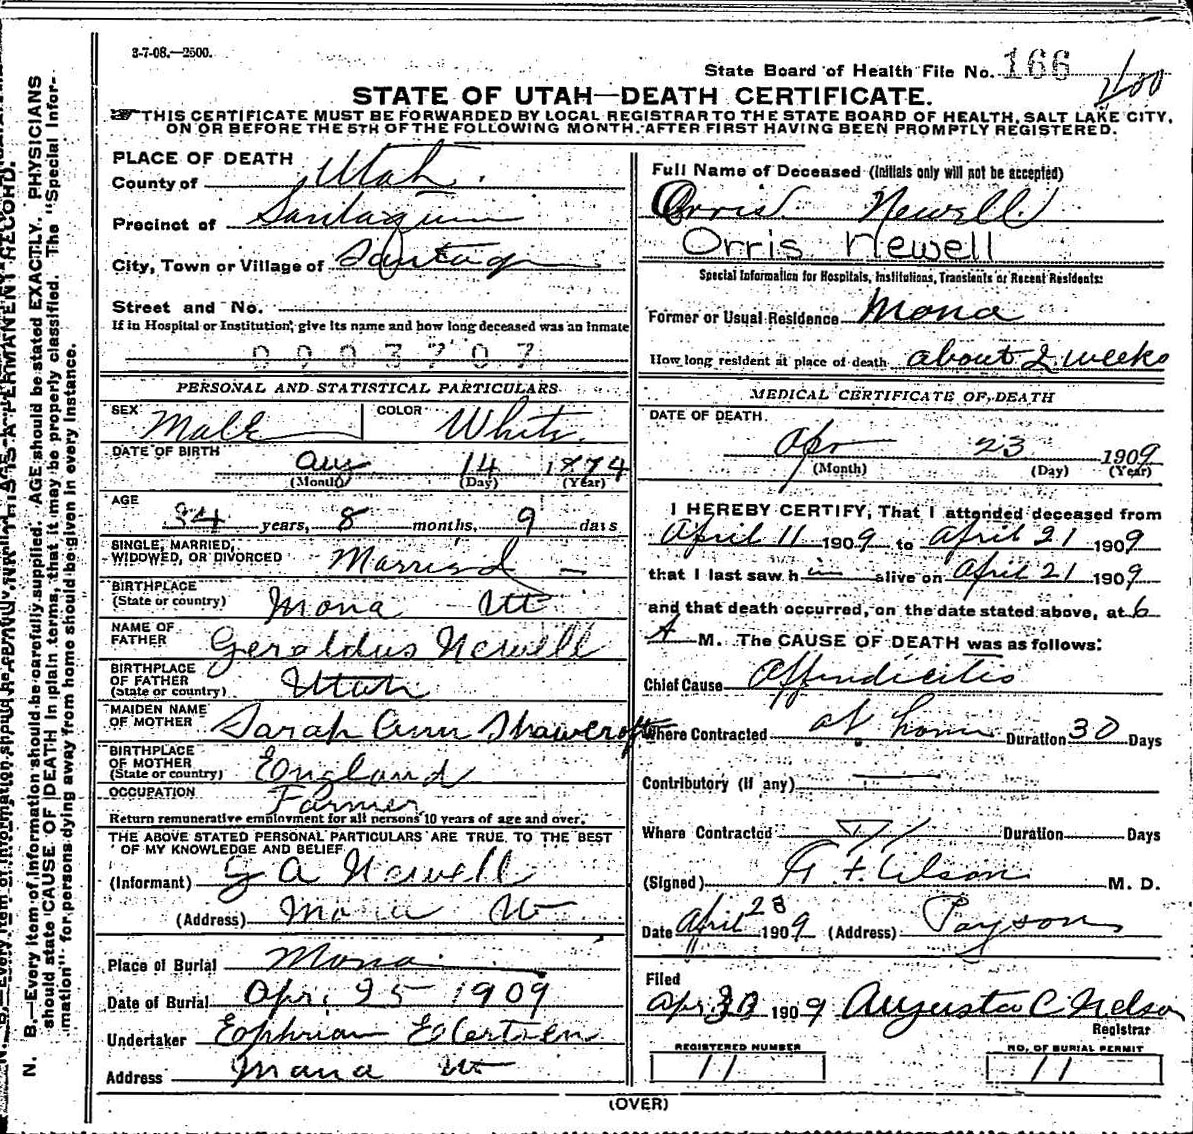 3-7-08.—2500.
State Board of Health File No. 166
STATE OF UTAH—DEATH CERTIFICATE.
THIS CERTIFICATE MUST BE FORWARDED BY LOCAL REGISTRAR TO THE STATE BOARD OF HEALTH, SALT LAKE CITY,
ON OR BEFORE THE 5TH OF THE FOLLOWING MONTH. AFTER FIRST HAVING BEEN PROMPTLY REGISTERED.
PLACE OF DEATH
County of Utah.
Precinct of Santaquin
City, Town or Village of Santaqin
Street and No.
If in Hospital or Institution, give its name and how long deceased was an inmate
0903207
PERSONAL AND STATISTICAL PARTICULARS
SEX Male COLOR White
DATE OF BIRTH Aug 14 1874
(Month) (Day) (Year)
AGE
34 years, 8 months, 9 days
SINGLE, MARRIED,
WIDOWED, OR DIVORCED Married —
BIRTHPLACE
(State or country) Mona Ut
NAME OF
FATHER Geraldus Newell
BIRTHPLACE
OF FATHER
(State or country) Utah
MAIDEN NAME
OF MOTHER Sarah Ann Shawcroft
BIRTHPLACE
OF MOTHER
(State or country) England
OCCUPATION Farmer
Return remunerative employment for all persons 10 years of age and over.
THE ABOVE STATED PERSONAL PARTICULARS ARE TRUE TO THE BEST
OF MY KNOWLEDGE AND BELIEF
(Informant) G A Newell
(Address) Mona Ut
Place of Burial Mona
Date of Burial Apr. 25 1909
Undertaker Ephriam Ellertsen
Address Mona Ut
Full Name of Deceased (Initials only will not be accepted)
Orris Newell
Orris Newell
Special Information for Hospitals, Institutions, Transients or Recent Residents:
Former or Usual Residence Mona
How long resident at place of death about 2 weeks
MEDICAL CERTIFICATE OF DEATH
DATE OF DEATH.
Apr 23 1909
(Month) (Day) (Year)
I HEREBY CERTIFY, That I attended deceased from
April 11 1909 to April 21 1909
that I last saw him alive on April 21 1909
and that death occurred, on the date stated above, at 6
A M. The CAUSE OF DEATH was as follows:
Chief Cause Appendicitis
Where Contracted at home Duration 30 Days
Contributory (if any)
Where Contracted Duration Days
(Signed) M. D.
Date April 28 1909 (Address) Payson
Filed
Apr. 30 1909 Augusta C Nelson
Registrar
REGISTERED NUMBER
11
NO. OF BURIAL PERMIT
11
(OVER)
N. B.—Every item of information should be carefully supplied. AGE should be stated EXACTLY. PHYSICIANS
should state CAUSE OF DEATH in plain terms, that it may be properly classified. The "Special Infor-
mation" for persons dying away from home should be given in every instance.